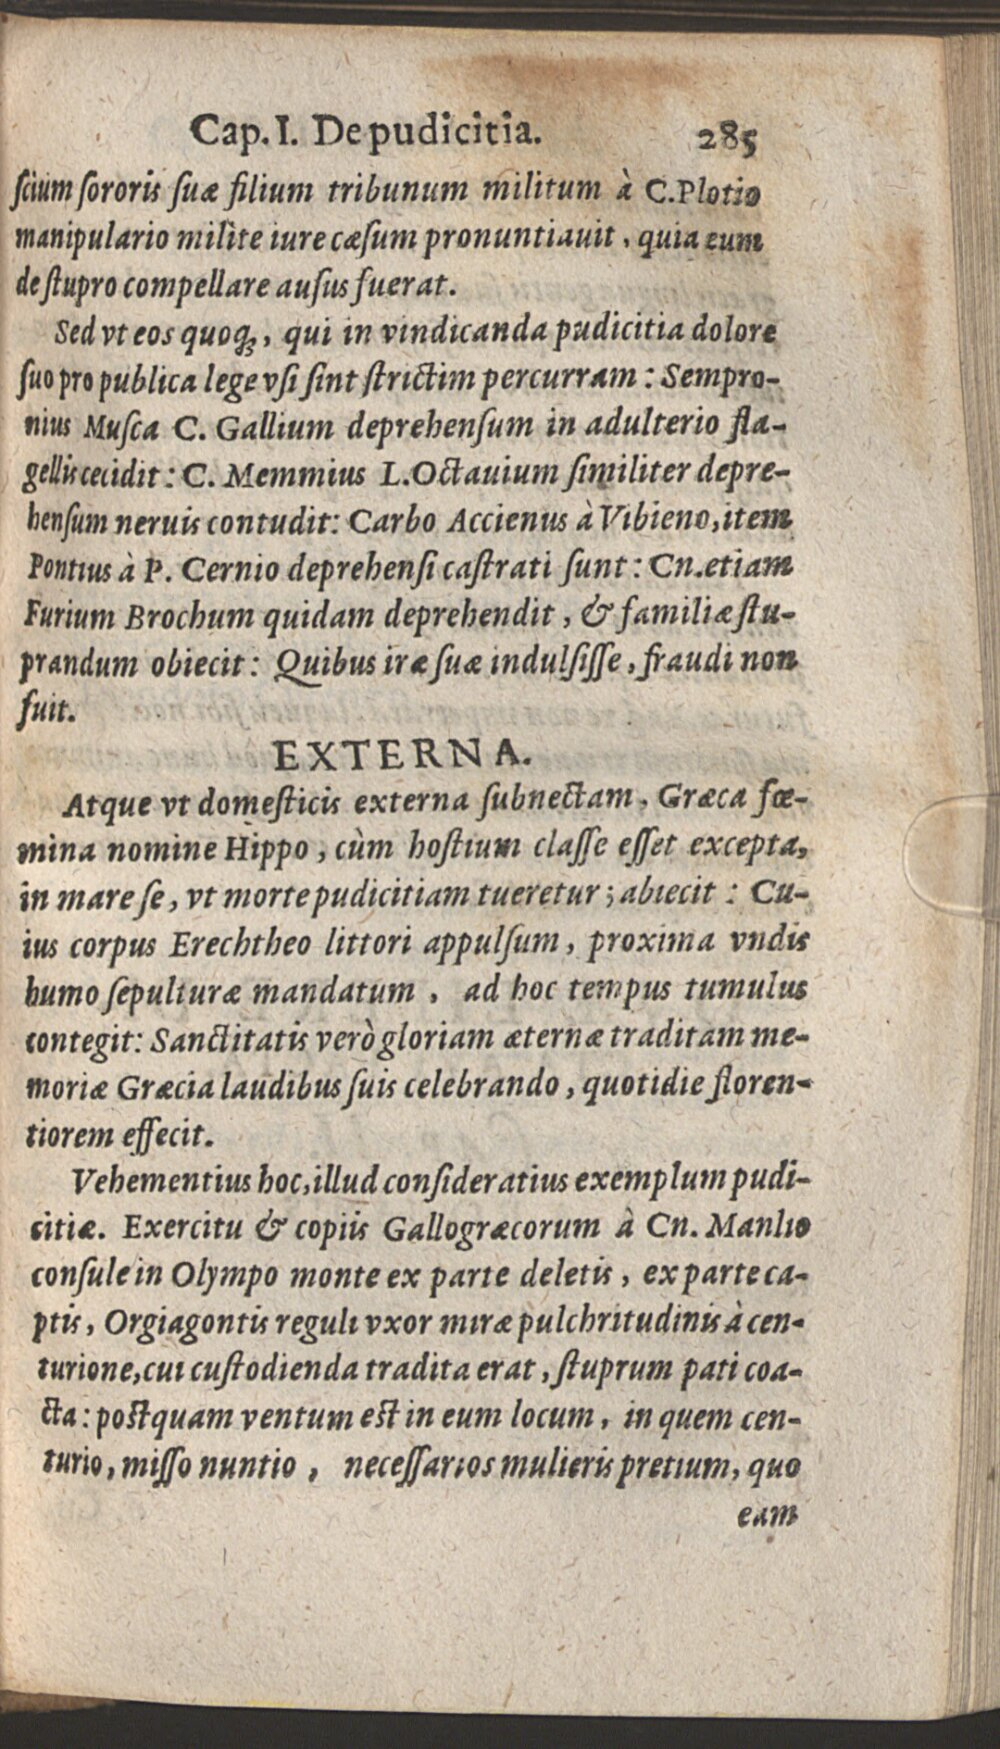 Cap. I. De pudicitia. 285
ſcium ſororis ſuæ filium tribunum militum à C. Plotio
manipulario milite iure cæſum pronuntiauit, quia eum
de ſtupro compellare auſus fuerat.
Sed vt eos quoq;, qui in vindicanda pudicitia dolore
ſuo pro publica lege vſi ſint ſtrictim percurram: Sempro-
nius Muſca C. Gallium deprehenſum in adulterio fla-
gellis cecidit: C. Memmius L. Octauium ſimiliter depre-
henſum neruis contudit: Carbo Accienus à Vibieno, item
Pontius à P. Cernio deprehenſi caſtrati ſunt: Cn. etiam
Furium Brochum quidam deprehendit, & familiæ ſtu-
prandum obiecit: Quibus iræ ſuæ indulſiſſe, fraudi non
fuit.
EXTERNA.
Atque vt domeſticis externa ſubnectam, Græca fœ-
mina nomine Hippo, cùm hoſtium claſſe eſſet excepta,
in mare ſe, vt morte pudicitiam tueretur; abiecit: Cu-
ius corpus Erechtheo littori appulſum, proxima vndis
humo ſepulturæ mandatum, ad hoc tempus tumulus
contegit: Sanctitatis verò gloriam æternæ traditam me-
moriæ Græcia laudibus ſuis celebrando, quotidie floren-
tiorem effecit.
Vehementius hoc, illud conſideratius exemplum pudi-
citiæ. Exercitu & copiis Gallogræcorum à Cn. Manlio
conſule in Olympo monte ex parte deletis, ex parte ca-
ptis, Orgiagontis reguli vxor miræ pulchritudinis à cen-
turione, cui cuſtodienda tradita erat, ſtuprum pati coa-
cta: poſtquam ventum eſt in eum locum, in quem cen-
turio, miſſo nuntio, neceſſarios mulieris pretium, quo
eam